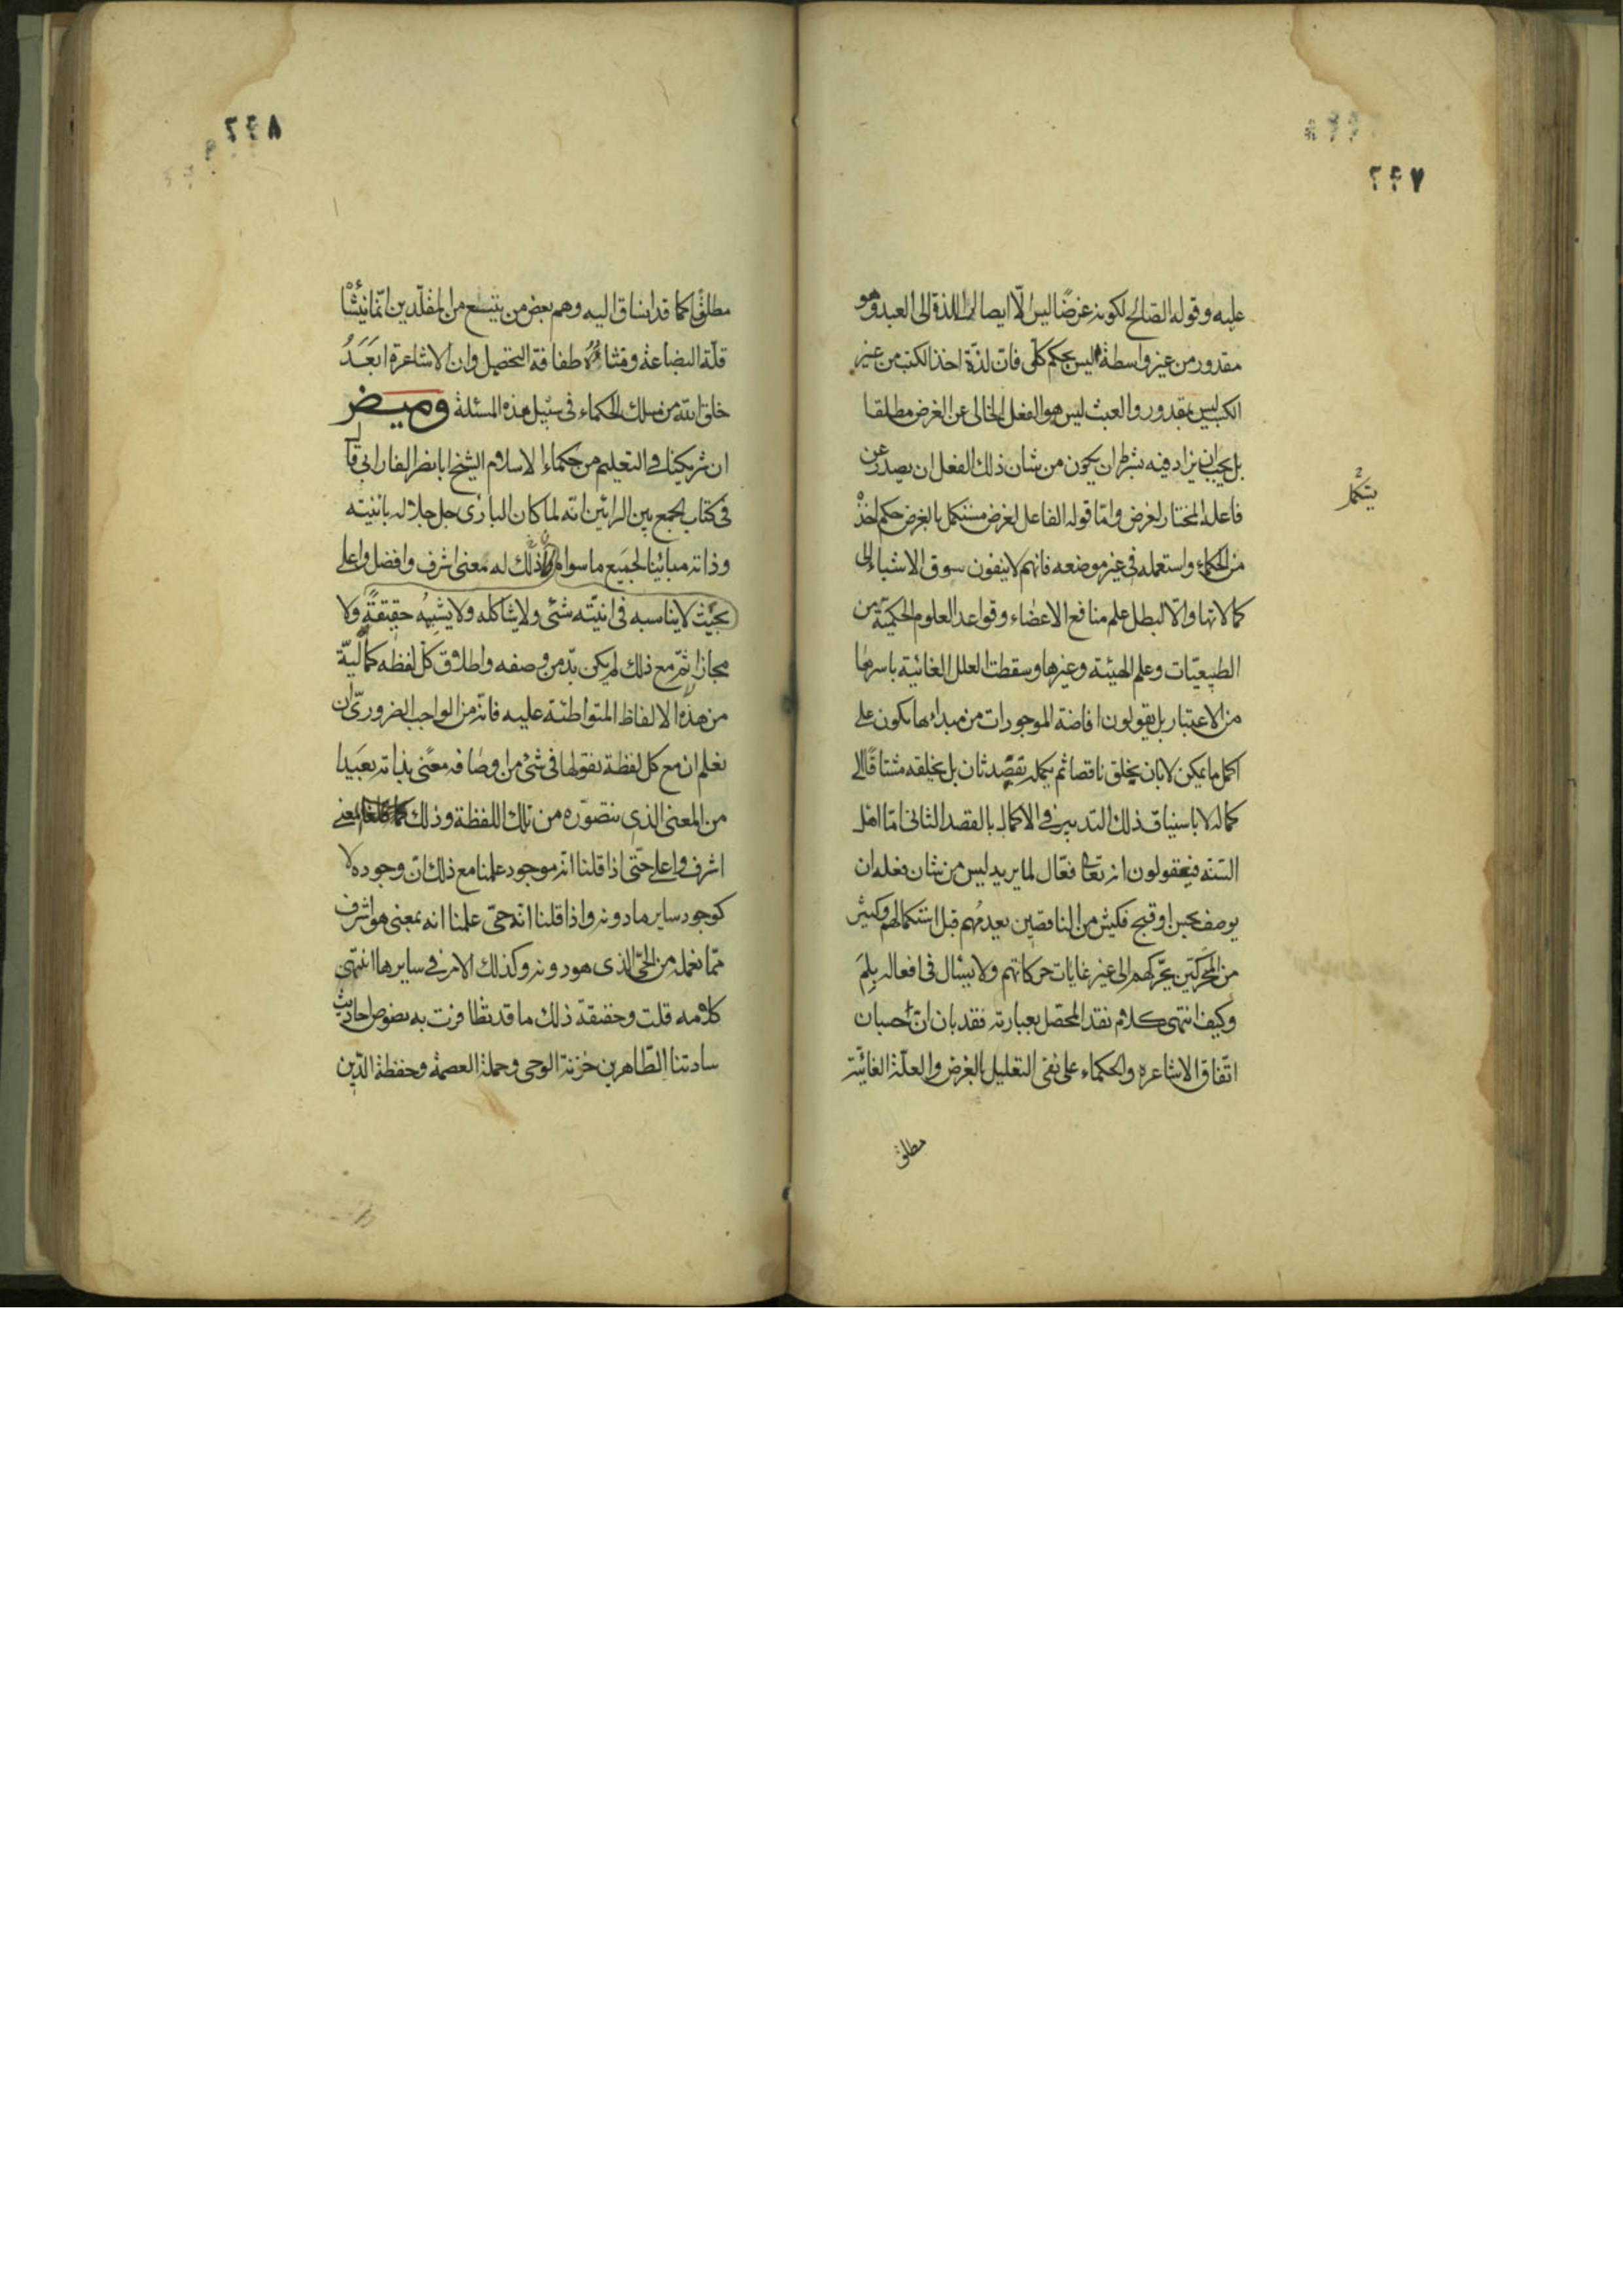 ٢٤٧
عليه وقوله الصالح لكونه غرضا ليس الّا ايصال اللذة الى العبد وهو
مقدور من غير واسطة ليس بحكم كلّى فان لذّة اخذ الكسب من غير
الكسب ليس بمقدور والعبث ليس هو الفعل الخالى عن الغرض مطلقا
بل يجب ان يزاد فيه بشرط ان يكون من شان ذلك الفعل ان يصدر عن
فاعله المختار لغرض وامّا قوله الفاعل لغرض مستكمل بالغرض حكم اخذ
من الحكماء واستعمله فى غير موضعه فانهم لا ينفون سوق الاشياء الى
كمالاتها والّا لبطل علم منافع الاعضاء وقواعد العلوم الحكميّة من
الطبيعيّات وعلم الهيئة وغيرها وسقطت العلل الغائية باسرها
من الاعتبار بل يقولون افاضة الموجودات من مبدأها يكون على
اكمل ما يمكن لا بان يخلق ناقصا ثم يكمله بقصد ثان بل يخلقه مشتاقًا الى
كماله لا باستيناف ذلك التدبير فى الاكمال بالقصد الثانى امّا اهل
السّنه فيقولون انه تعالى فعّال لما يريد ليس من شان فعله ان
يوصف بحسن او قبح فكثير من الناقصين يعدمهم قبل استكمالهم وكثير
من المحركين يحرّكهم الى غير غايات حركاتهم ولا يسئال فى افعاله بلِمَ
وكيف انتهى كلام نقد المحصّل بعبارته فقد بان انّ حسبان
اتّفاق الاشاعره والحكماء على نفى التعليل بالغرض والعلّة الغائيّة
مطلقا
٢٤٨
مطلقًا كما قد انساق اليه وهم بعض من يتبع من المقلّدين انّما نَشَأ
قلّة البضاعة وطفافة التحصيل وان الاشاعرة ابعَدُ
خلق الله من مسلك الحكماء فى سبيل هذه المسئلة وميض
ان شريكنا فى التعليم من حكماء الاسلام الشيخ ابا نصر الفارابى قال
فى كتاب الجمع بين الرائين انه لما كان البارى جل جلاله بانّيته
وذاته مباينا لجميع ما سواه وذلك له بمعنى اشرف وافضل واعلى
بحيث لا يناسبه فى انيّته شئ ولا يشاكله ولا يشبهه حقيقةً ولا
مجازا ثمّ مع ذلك لم يكن بدّ من وصفه واطلاق كلّ لفظه كماليّة
من هذه الالفاظ المتواطئة عليه فانّه من الواجب الضرورىّ ان
نعلم ان مع كل لفظة نقولها فى شئ من اوصافه معنًى بذاته بعيدا
من المعنى الذى نتصوّره من تلك اللفظة وذلك بمعنى
اشرف واعلى حتّى اذا قلنا انه موجود علمنا مع ذلك انّ وجوده لا
كوجود ساير ما دونه واذا قلنا انّه حىّ علمنا انه بمعنى هو اشرف
ممّا نعلمه من الحىّ الذى هو دونه وكذلك الامر فى سايرها انتهى
كلامه قلت وحقيقة ذلك ما قد تظافرت به نصوص احاديث
سادتنا الطّاهرين خزنة الوحى وحملة العصمة وحفظة الدّين